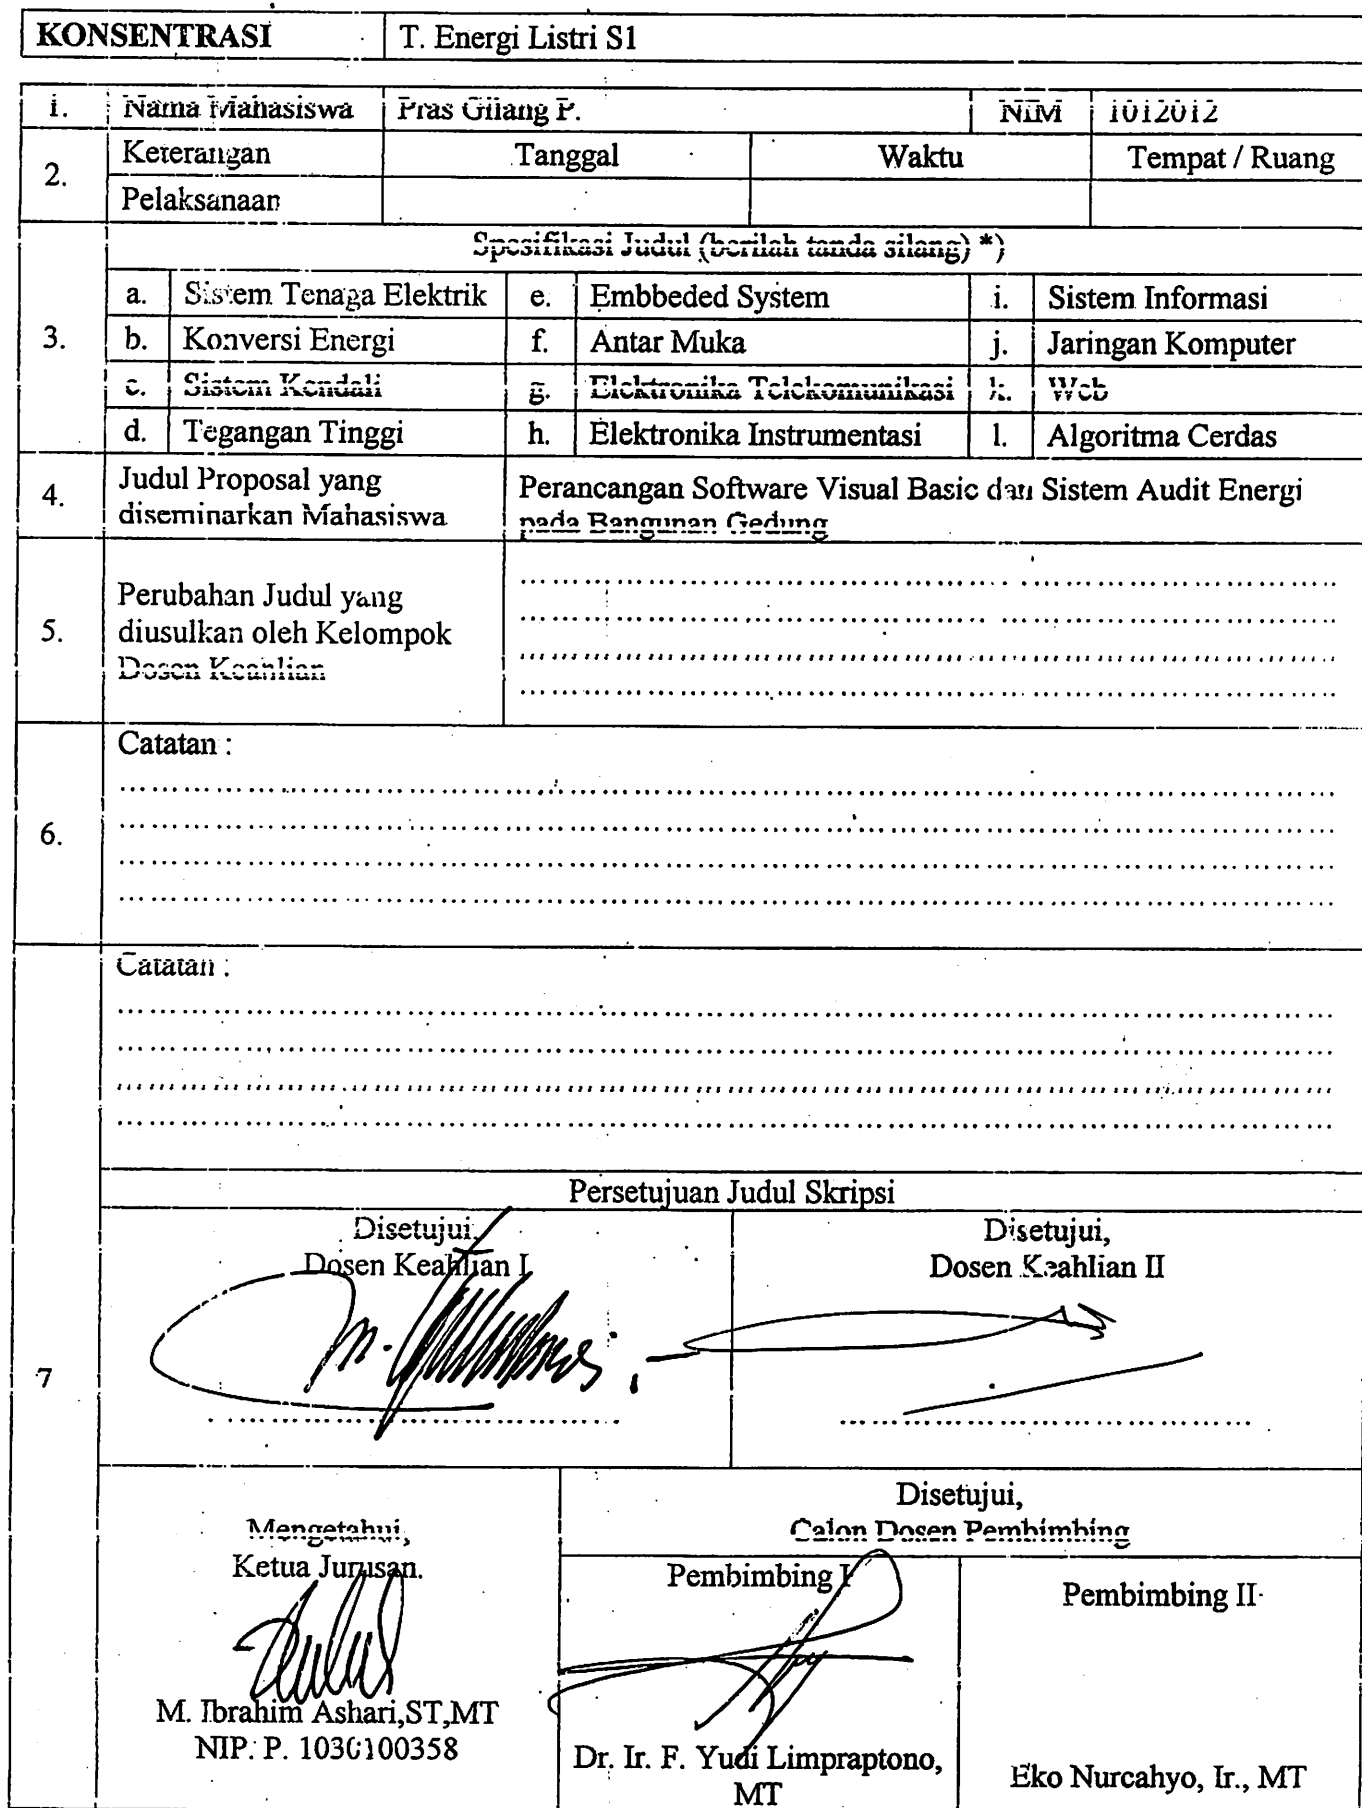 KONSENTRASI T. Energi Listri S1
1. Nama Mahasiswa Pras Gilang P. NIM 1012012
2. Keterangan Tanggal Waktu Tempat / Ruang
Pelaksanaan
3. Spesifikasi Judul (berilah tanda silang) *)
a. Sistem Tenaga Elektrik e. Embbeded System i. Sistem Informasi
b. Konversi Energi f. Antar Muka j. Jaringan Komputer
c. Sistem Kendali g. Elektronika Telekomunikasi k. Web
d. Tegangan Tinggi h. Elektronika Instrumentasi l. Algoritma Cerdas
4. Judul Proposal yang
diseminarkan Mahasiswa
Perancangan Software Visual Basic dan Sistem Audit Energi
pada Bangunan Gedung
5. Perubahan Judul yang
diusulkan oleh Kelompok
Dosen Keahlian
6. Catatan :
7 Catatan :
Persetujuan Judul Skripsi
Disetujui,
Dosen Keahlian I
Disetujui,
Dosen Keahlian II
Mengetahui,
Ketua Jurusan.
M. Ibrahim Ashari,ST,MT
NIP. P. 1030100358
Disetujui,
Calon Dosen Pembimbing
Pembimbing I
Dr. Ir. F. Yudi Limpraptono,
MT
Pembimbing II
Eko Nurcahyo, Ir., MT